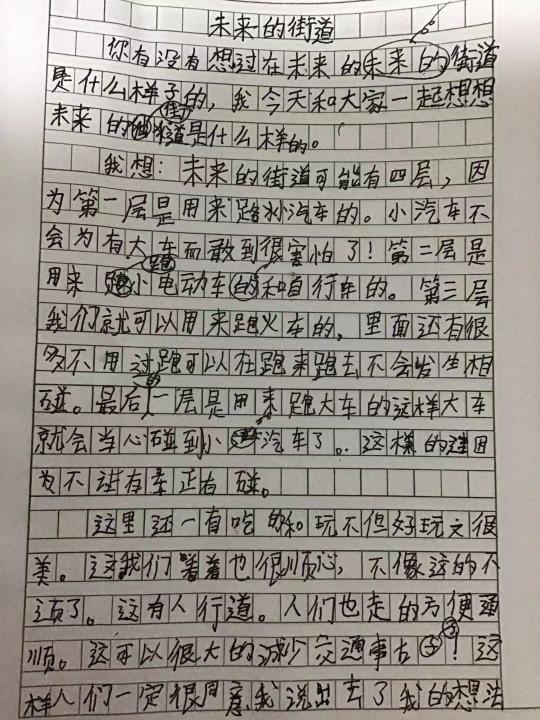 未来的街道
你有没有想过在未来的未来的街道
是什么样子的，我今天和大家一起想想
未来的街道是什么样的。
我想：未来的街道可能有四层，因
为第一层是用来跑小汽车的。小汽车不
会为有大车而敢到很害怕了！第二层是
用来跑小电动车的和自行车的。第三层
我们就可以用来跑火车的，里面还有很
多不用过跑可以在跑来跑去不会发生相
碰。最后的一层是用来跑大车的这样大车
就会当心碰到小汽车了。这样的
为不
这里还一有吃的和玩不但好玩又很
美。这我们看着也很顺心，不像这的不
了。这有人行道。人们也走的方便通
顺。这可以很大的减少交通事古子！这
样人们一定很同意我说出去了我的想法